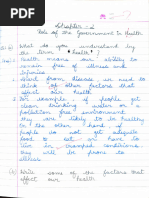 Chapter - 2
Role of the Government In Health
Q1 What do you understand by
the term "health"?
Ans:- Health means our ability to
remain free of illness and
injuries
Apart from disease we need to
think of other factors that
affect our health.
For example, if people get
clean drinking water or a
pollution free environment
they are likely to be healthy
In the other hand if
people do not get adequate
food to eat or have to
live in cramped conditions
they will be prone to
illness.
Write some of the factors that
affect our health